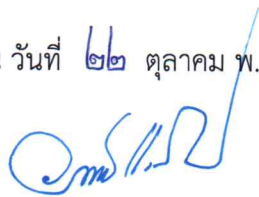 วันที่ ๒๒ ตุลาคม พ.